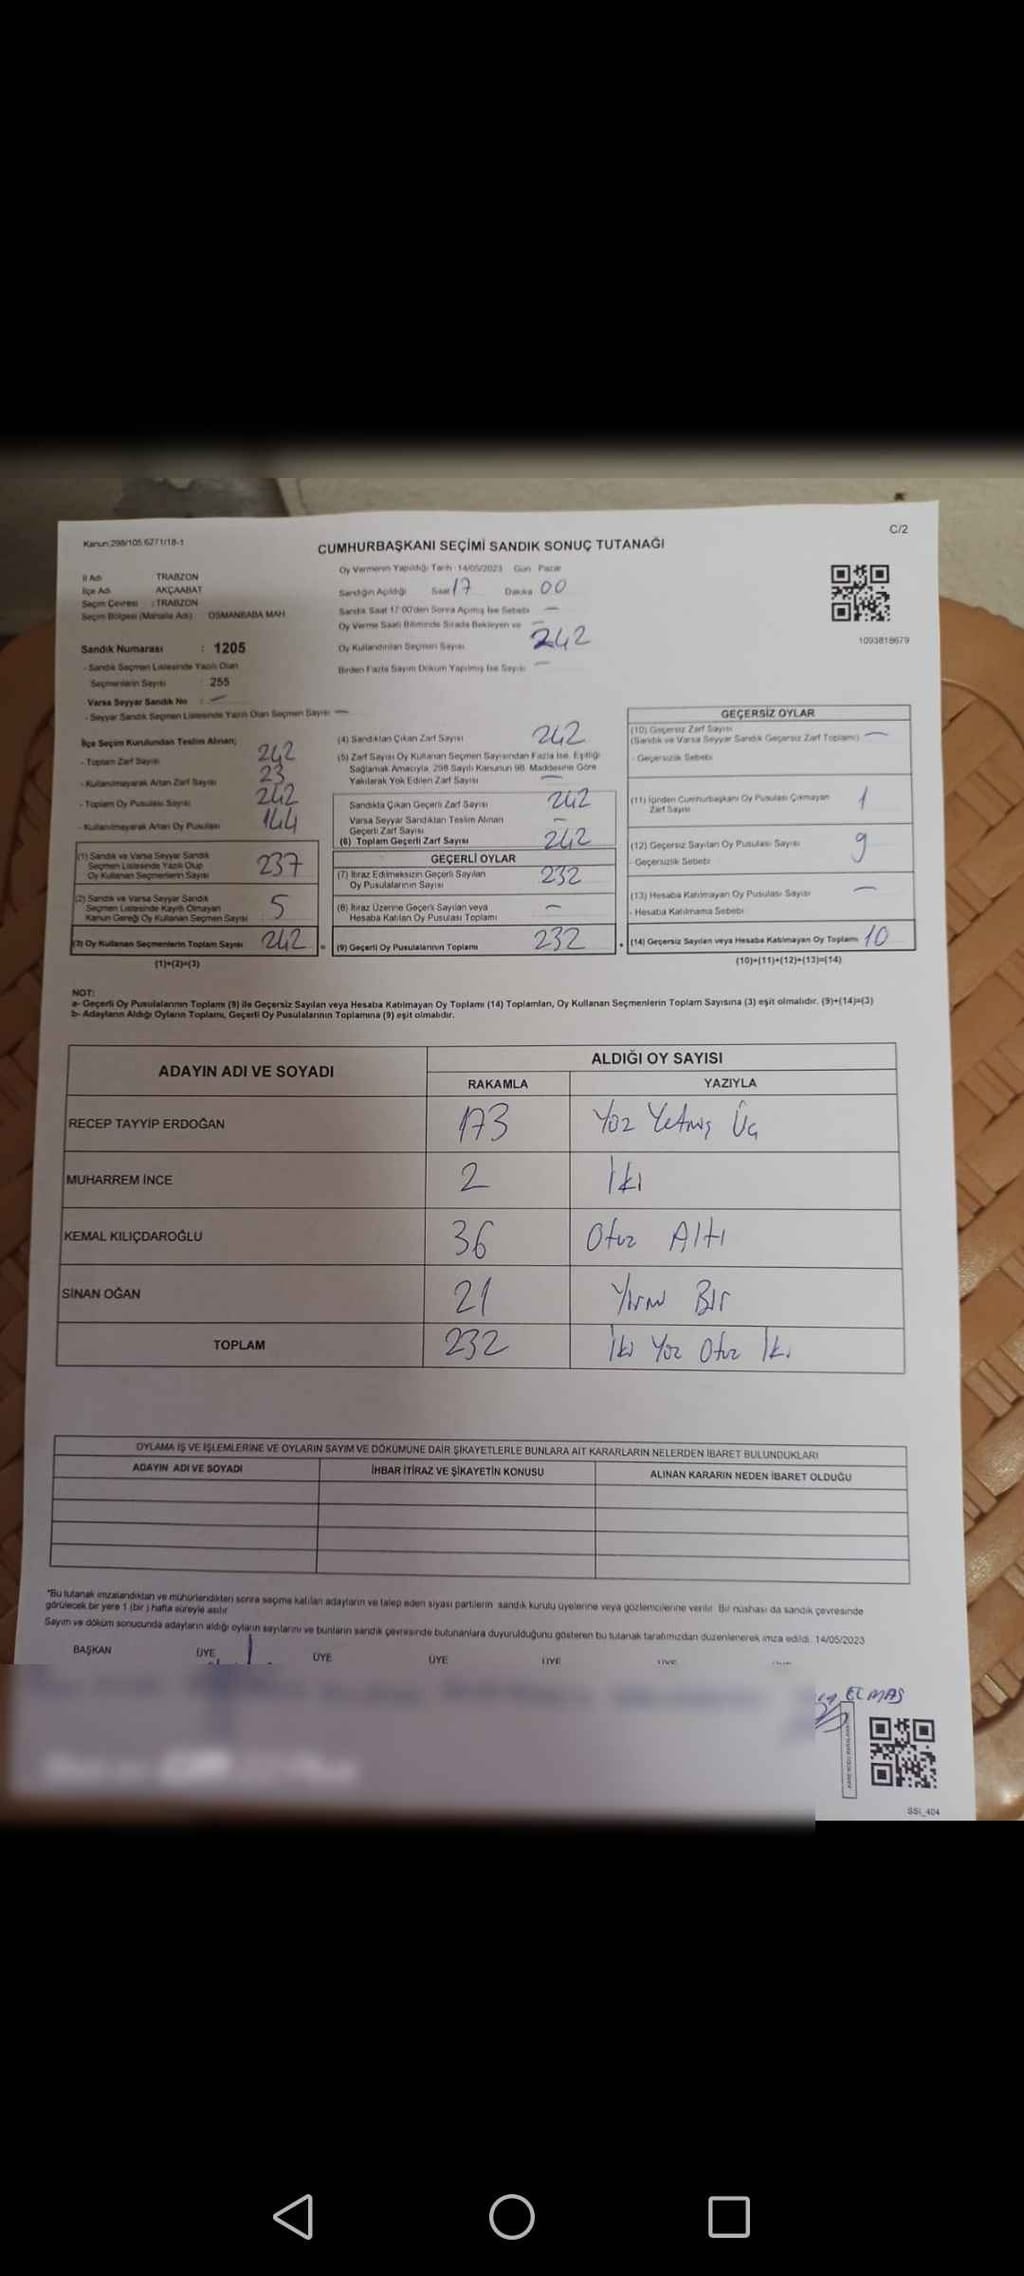 Kanun:298/105.6271/18-1
C/2
CUMHURBAŞKANI SEÇİMİ SANDIK SONUÇ TUTANAĞI
İl Adı TRABZON
İlçe Adı AKÇAABAT
Seçim Çevresi : TRABZON
Seçim Bölgesi (Mahalle Adı) : OSMANBABA MAH
Sandık Numarası : 1205
- Sandık Seçmen Listesinde Yazılı Olan
Seçmenlerin Sayısı : 255
Varsa Seyyar Sandık No : —
- Seyyar Sandık Seçmen Listesinde Yazılı Olan Seçmen Sayısı —
Oy Vermenin Yapıldığı Tarih : 14/05/2023 Gün Pazar
Sandığın Açıldığı Saat 17 Dakika 00
Sandık Saat 17:00'den Sonra Açılmış İse Sebebi —
Oy Verme Saati Bitiminde Sırada Bekleyen ve —
Oy Kullandırılan Seçmen Sayısı 242
Birden Fazla Sayım Döküm Yapılmış İse Sayısı —
1093818679
İlçe Seçim Kurulundan Teslim Alınan;
- Toplam Zarf Sayısı 242
- Kullanılmayarak Artan Zarf Sayısı 23
- Toplam Oy Pusulası Sayısı 242
- Kullanılmayarak Artan Oy Pusulası 144
(1) Sandık ve Varsa Seyyar Sandık
Seçmen Listesinde Yazılı Olup
Oy Kullanan Seçmenlerin Sayısı 237
(2) Sandık ve Varsa Seyyar Sandık
Seçmen Listesinde Kayıtlı Olmayan
Kanun Gereği Oy Kullanan Seçmen Sayısı 5
(3) Oy Kullanan Seçmenlerin Toplam Sayısı 242 =
(1)+(2)=(3)
(4) Sandıktan Çıkan Zarf Sayısı 242
(5) Zarf Sayısı Oy Kullanan Seçmen Sayısından Fazla İse, Eşitliği
Sağlamak Amacıyla, 298 Sayılı Kanunun 98. Maddesine Göre
Yakılarak Yok Edilen Zarf Sayısı —
Sandıkta Çıkan Geçerli Zarf Sayısı 242
Varsa Seyyar Sandıktan Teslim Alınan
Geçerli Zarf Sayısı —
(6) Toplam Geçerli Zarf Sayısı 242
GEÇERLİ OYLAR
(7) İtiraz Edilmeksizin Geçerli Sayılan
Oy Pusulalarının Sayısı 232
(8) İtiraz Üzerine Geçerli Sayılan veya
Hesaba Katılan Oy Pusulası Toplamı —
(9) Geçerli Oy Pusulalarının Toplamı 232 +
GEÇERSİZ OYLAR
(10) Geçersiz Zarf Sayısı
(Sandık ve Varsa Seyyar Sandık Geçersiz Zarf Toplamı) —
- Geçersizlik Sebebi
(11) İçinden Cumhurbaşkanı Oy Pusulası Çıkmayan
Zarf Sayısı 1
(12) Geçersiz Sayılan Oy Pusulası Sayısı 9
- Geçersizlik Sebebi
(13) Hesaba Katılmayan Oy Pusulası Sayısı —
- Hesaba Katılmama Sebebi
(14) Geçersiz Sayılan veya Hesaba Katılmayan Oy Toplamı 10
(10)+(11)+(12)+(13)=(14)
NOT:
a- Geçerli Oy Pusulalarının Toplamı (9) ile Geçersiz Sayılan veya Hesaba Katılmayan Oy Toplamı (14) Toplamları, Oy Kullanan Seçmenlerin Toplam Sayısına (3) eşit olmalıdır. (9)+(14)=(3)
b- Adayların Aldığı Oyların Toplamı, Geçerli Oy Pusulalarının Toplamına (9) eşit olmalıdır.
ADAYIN ADI VE SOYADI
ALDIĞI OY SAYISI
RAKAMLA YAZIYLA
RECEP TAYYİP ERDOĞAN 173 Yüz Yetmiş Üç
MUHARREM İNCE 2 İki
KEMAL KILIÇDAROĞLU 36 Otuz Altı
SİNAN OĞAN 21 Yirmi Bir
TOPLAM 232 İki Yüz Otuz İki
OYLAMA İŞ VE İŞLEMLERİNE VE OYLARIN SAYIM VE DÖKÜMÜNE DAİR ŞİKAYETLERLE BUNLARA AİT KARARLARIN NELERDEN İBARET BULUNDUKLARI
ADAYIN ADI VE SOYADI İHBAR İTİRAZ VE ŞİKAYETİN KONUSU ALINAN KARARIN NEDEN İBARET OLDUĞU
*Bu tutanak imzalandıktan ve mühürlendikten sonra seçime katılan adayların ve talep eden siyasi partilerin sandık kurulu üyelerine veya gözlemcilerine verilir. Bir nüshası da sandık çevresinde
görülecek bir yere 1 (bir) hafta süreyle asılır
Sayım ve döküm sonucunda adayların aldığı oyların sayılarını ve bunların sandık çevresinde bulunanlara duyurulduğunu gösteren bu tutanak tarafımızdan düzenlenerek imza edildi. 14/05/2023
BAŞKAN ÜYE ÜYE ÜYE ÜYE ÜYE
ELMAS
SSI_404